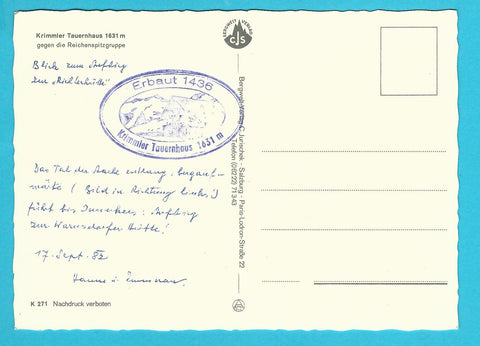 Krimmler Tauernhaus 1631 m
gegen die Reichenspitzgruppe
Blick zum Aufstieg
zur „Richterhütte“
Erbaut 1436
Krimmler Tauernhaus 1631 m
Das Tal der Ache entlang, bergauf-
wärts (Bild in Richtung links)
führt bis Aufstieg
zur Warnsdorfer Hütte!
17. Sept. 82
Hanna
K 271 Nachdruck verboten
BERGWELT VERLAG
CJS
Bergwelt-Verlag C. Jurischek - Salzburg - Paris-Lodron-Straße 22
Telefon (06222) 71343